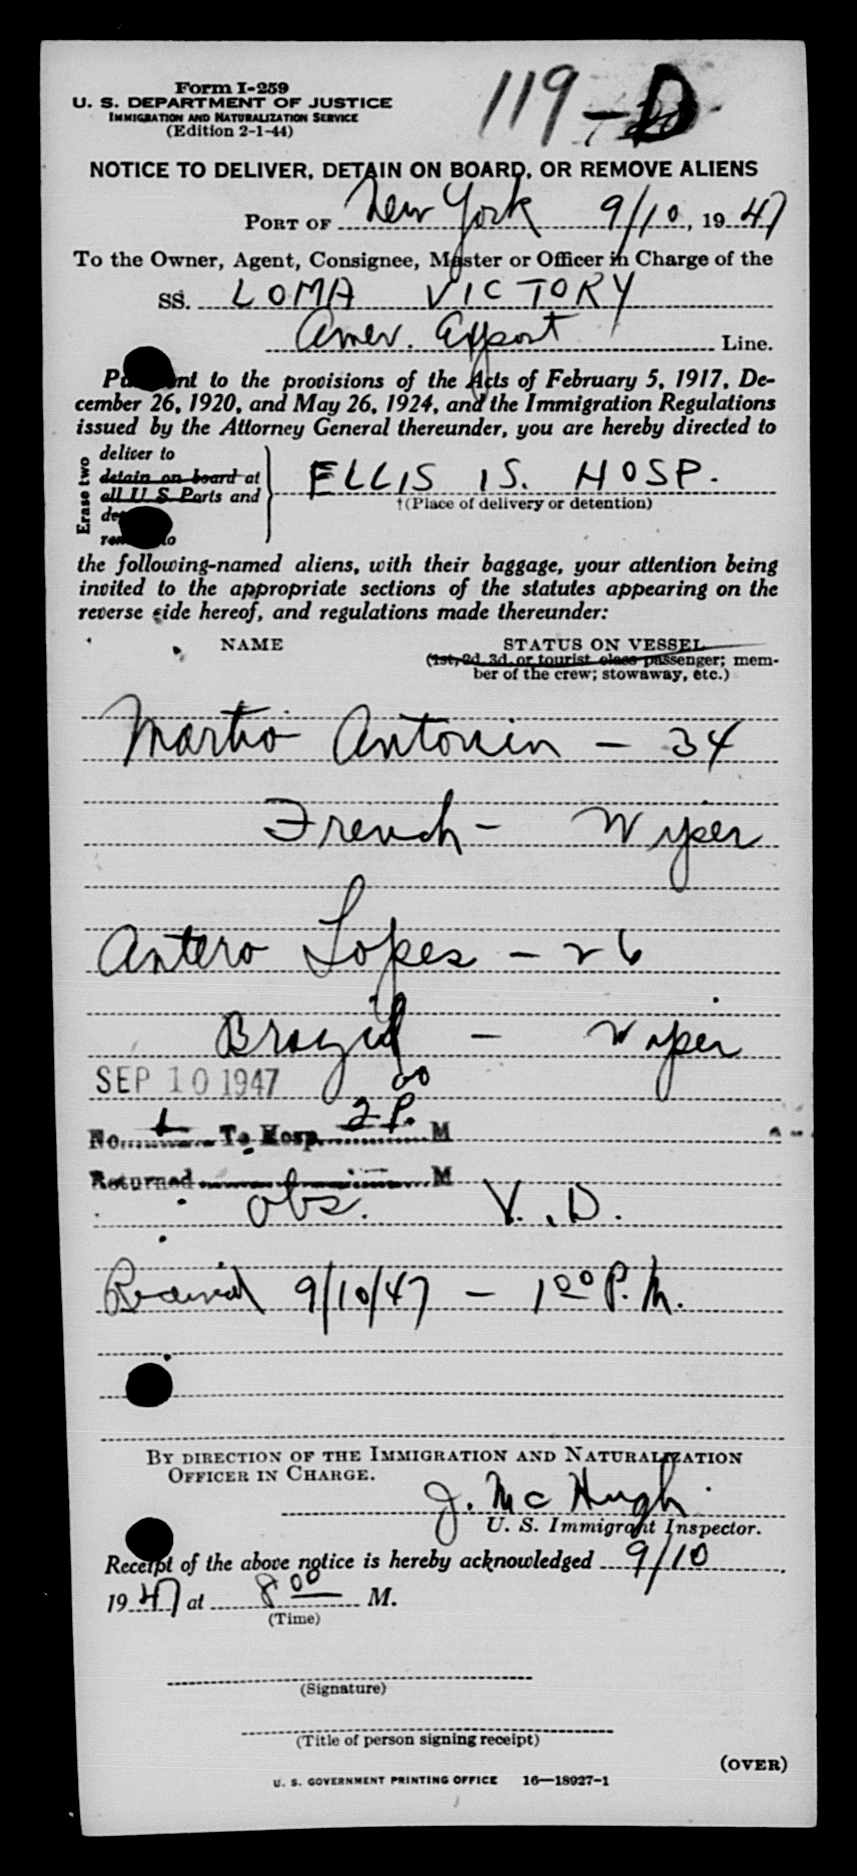 Form I-259
U. S. DEPARTMENT OF JUSTICE
IMMIGRATION AND NATURALIZATION SERVICE
(Edition 2-1-44)
119-D
NOTICE TO DELIVER, DETAIN ON BOARD, OR REMOVE ALIENS
PORT OF New York 9/10, 1947
To the Owner, Agent, Consignee, Master or Officer in Charge of the
SS. LOMA VICTORY
Amer. Export Line.
to the provisions of the Acts of February 5, 1917, De-
cember 26, 1920, and May 26, 1924, and the Immigration Regulations
issued by the Attorney General thereunder, you are hereby directed to
Erase two
deliver to
detain on board at
all U. S. Ports and
ELLIS IS. HOSP.
†(Place of delivery or detention)
the following-named aliens, with their baggage, your attention being
invited to the appropriate sections of the statutes appearing on the
reverse side hereof, and regulations made thereunder:
NAME
STATUS ON VESSEL
(1st, 2d, 3d, or tourist class passenger; mem-
ber of the crew; stowaway, etc.)
Antonin - 34
French - Wyper
Antero Lopes - 26
Brazil - Wiper
SEP 10 1947
No. To Hosp. 2 00 P. M
Returned M
obs. V. D.
Received 9/10/47 - 1 00 P. M.
BY DIRECTION OF THE IMMIGRATION AND NATURALIZATION
OFFICER IN CHARGE.
J. McHugh
U. S. Immigrant Inspector.
Receipt of the above notice is hereby acknowledged 9/10
1947 at 8 00 M.
(Time)
(Signature)
(Title of person signing receipt)
(OVER)
U. S. GOVERNMENT PRINTING OFFICE 16—18927-1